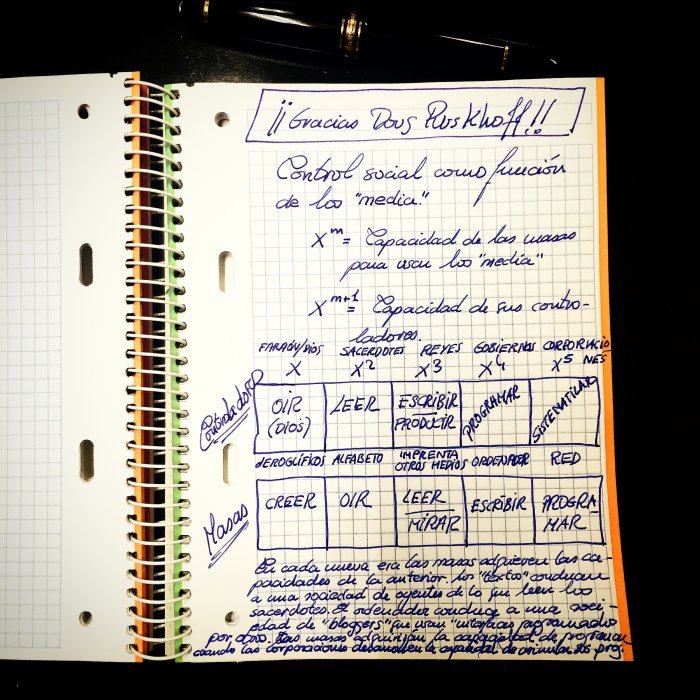 ¡¡Gracias Doug Ruskhoff!!
Control social como función
de los "media."
X^m = Capacidad de las masas
para usar los "media"
X^m+1 = Capacidad de sus contro-
ladores.
FARAÓN/DIOS SACERDOTES REYES GOBIERNOS CORPORACIO
NES
X X^2 X^3 X^4 X^5
Controladores
OIR (DIOS) LEER ESCRIBIR PRODUCIR PROGRAMAR
JEROGLÍFICOS ALFABETO IMPRENTA OTROS MEDIOS ORDENADOR RED
Masas
CREER OIR LEER MIRAR ESCRIBIR PROGRA-
MAR
En cada nueva era las masas adquieren las ca-
pacidades de la anterior. los "textos" conducen
a una sociedad de oyentes de lo que leen los
sacerdotes. El ordenador conduce a una soci-
edad de "bloggers" que usan "interfaces" programado
por otro. Las masas adquirirán la capacidad de programar
cuando las corporaciones desarrollen la capacidad de